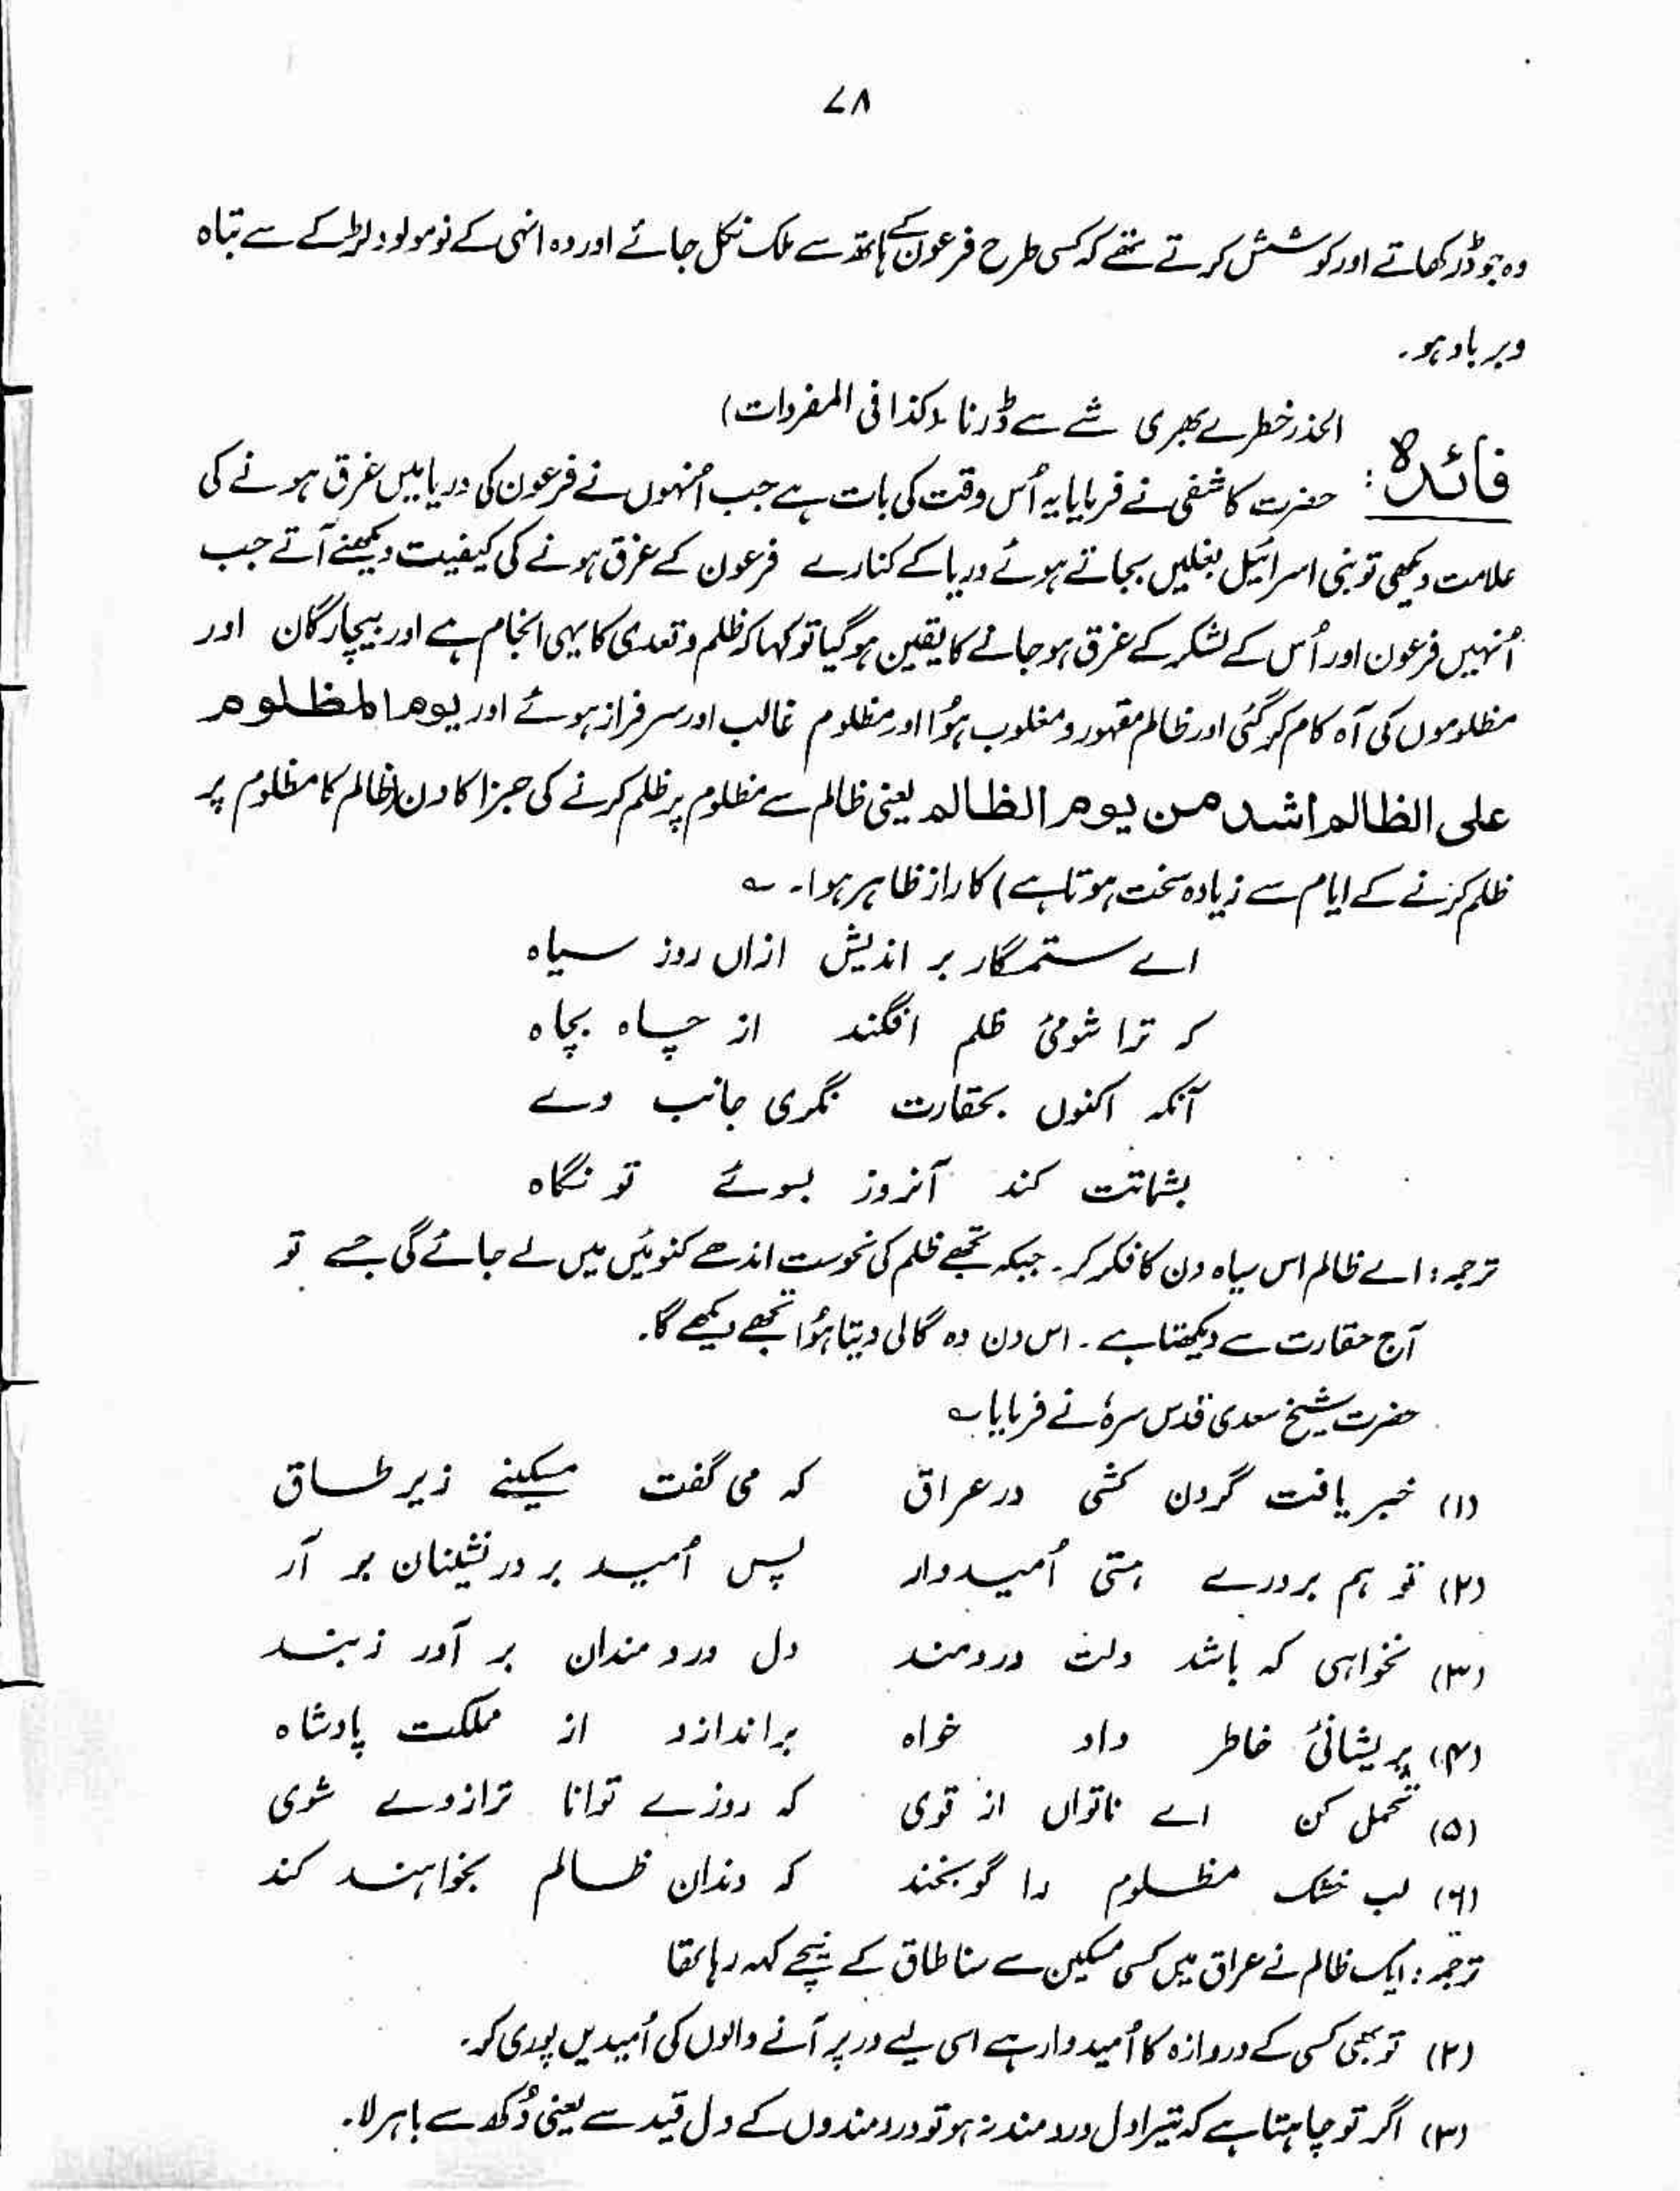 ۷۸
وہ جو ڈر رکھاتے اور کوشش کرتے تھے کہ کسی طرح فرعون کے ہاتھ سے ملک نکل جائے اور وہ انہی کے نومولود لڑکے سے تباہ
وبرباد ہو۔
الحذر خطرے بھری شے سے ڈرنا (کذا فی المفردات)
فائدہ: حضرت کاشفی نے فرمایا یہ اُس وقت کی بات ہے جب اُنہوں نے فرعون کی دریا میں غرق ہونے کی
علامت دیکھی تو بنی اسرائیل بغلیں بجاتے ہوئے دریا کے کنارے فرعون کے غرق ہونے کی کیفیت دیکھنے آتے جب
اُنہیں فرعون اور اُس کے لشکر کے غرق ہو جانے کا یقین ہو گیا تو کہا کہ ظلم و تعدی کا یہی انجام ہے اور بیچارگان اور
مظلوموں کی آہ کام کر گئی اور ظالم مقہور و مغلوب ہؤا اور مظلوم غالب اور سرفراز ہوئے اور یوم المظلوم
علی الظالم اشد من یوم الظالم یعنی ظالم سے مظلوم پر ظلم کرنے کی جزا کا دن (ظالم کا مظلوم پر
ظلم کرنے کے ایام سے زیادہ سخت ہوتا ہے) کا راز ظاہر ہوا۔ ؎
اے ستمگار بر اندیش ازاں روز سیاہ
کہ ترا شومئ ظلم افگند از چاہ بچاہ
آنکہ اکنوں بحقارت نگری جانب وے
بشماتت کند آنروز بسوئے تو نگاہ
ترجمہ: اے ظالم اس سیاہ دن کا فکر کر۔ جبکہ تجھے ظلم کی نحوست اندھے کنوئیں میں لے جائے گی جسے تو
آج حقارت سے دیکھتا ہے۔ اس دن وہ گالی دیتا ہؤا تجھے دیکھے گا۔
حضرت شیخ سعدی قدس سرہٗ نے فرمایا ؎
(۱) خبر یافت گردن کشی در عراق کہ می گفت مسکینے زیر طاق
(۲) تو ہم بر درے ہستی اُمیدوار پس اُمید بر در نشینان بر آر
(۳) نخواہی کہ باشد دلت دردمند دل دردمندان بر آور زبند
(۴) پریشانئ خاطر داد خواہ براندازد از مملکت پادشاہ
(۵) تحمل کن اے ناتواں از قوی کہ روزے توانا ترازوے شوی
(۶) لب خشک مظلوم را گو بخند کہ دندان ظالم بخواہند کند
ترجمہ: ایک ظالم نے عراق میں کسی مسکین سے سنا طاق کے نیچے کہہ رہا تھا
(۲) تو بھی کسی کے دروازہ کا اُمیدوار ہے اسی لیے در پر آنے والوں کی اُمیدیں پوری کر۔
(۳) اگر تو چاہتا ہے کہ تیرا دل دردمند نہ ہو تو دردمندوں کے دل قید سے یعنی دُکھ سے باہر لا۔